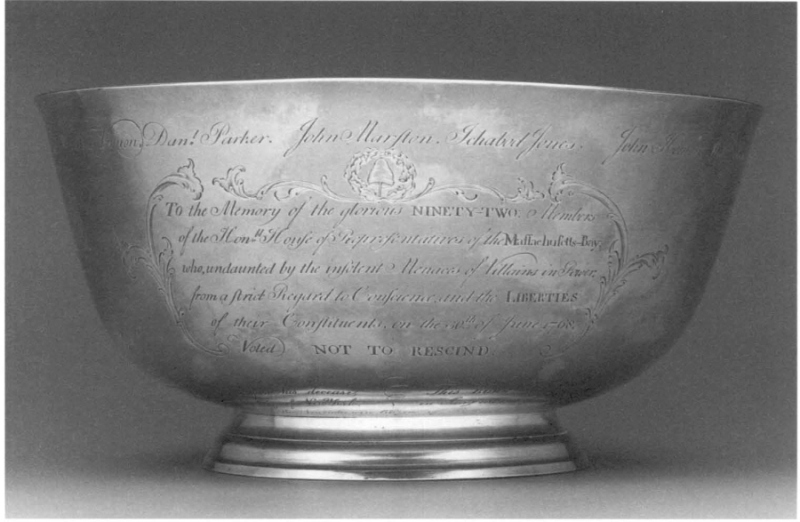 Dan.l Parker. John Marston. Ichabod Jones. John
To the Memory of the glorious NINETY-TWO Members
of the Hon.bl House of Representatives of the Massachusetts-Bay
who, undaunted by the insolent Menaces of Villains in Power,
from a strict Regard to Conscience and the LIBERTIES
of their Constituents, on the 30th of June 1768
Voted NOT TO RESCIND.